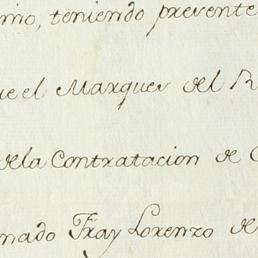 mo, teniendo presente
el Marques del R
dela Contratacion de C
nado Fray Lorenzo de